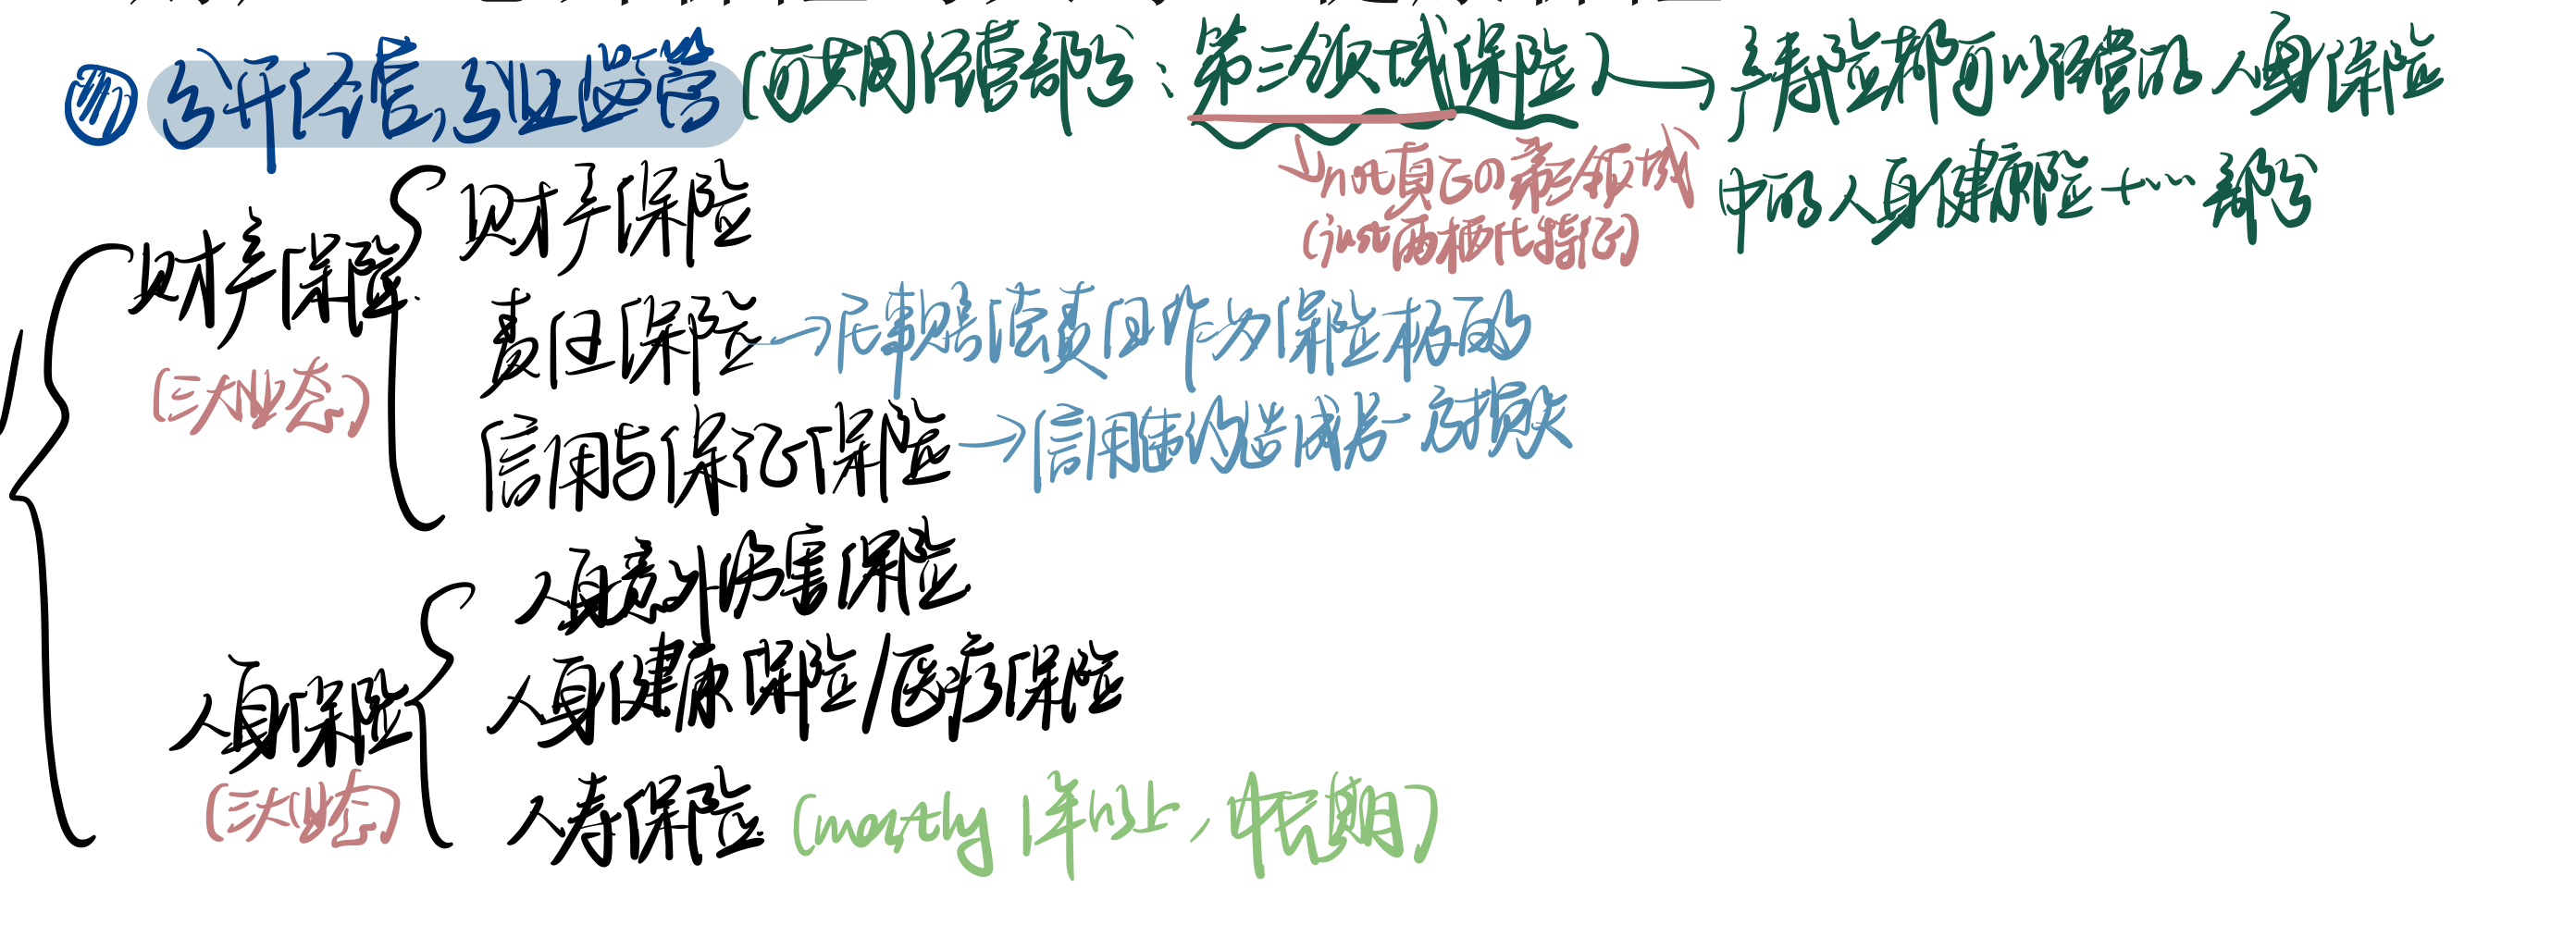 分开经营,分业监管(可共同经营部分:第三领域保险)→产寿险都可以经营的人身保险
中的人身健康险+…部分
↓not真正の第三领域
(just两栖化特征)
财产保险
(三大业态)
财产保险
责任保险→民事赔偿责任作为保险标的
信用与保证保险→信用违约造成另一方损失
人身保险
(三大业态)
人身意外伤害保险
人身健康保险/医疗保险
人寿保险(mostly 1年以上,中长期)